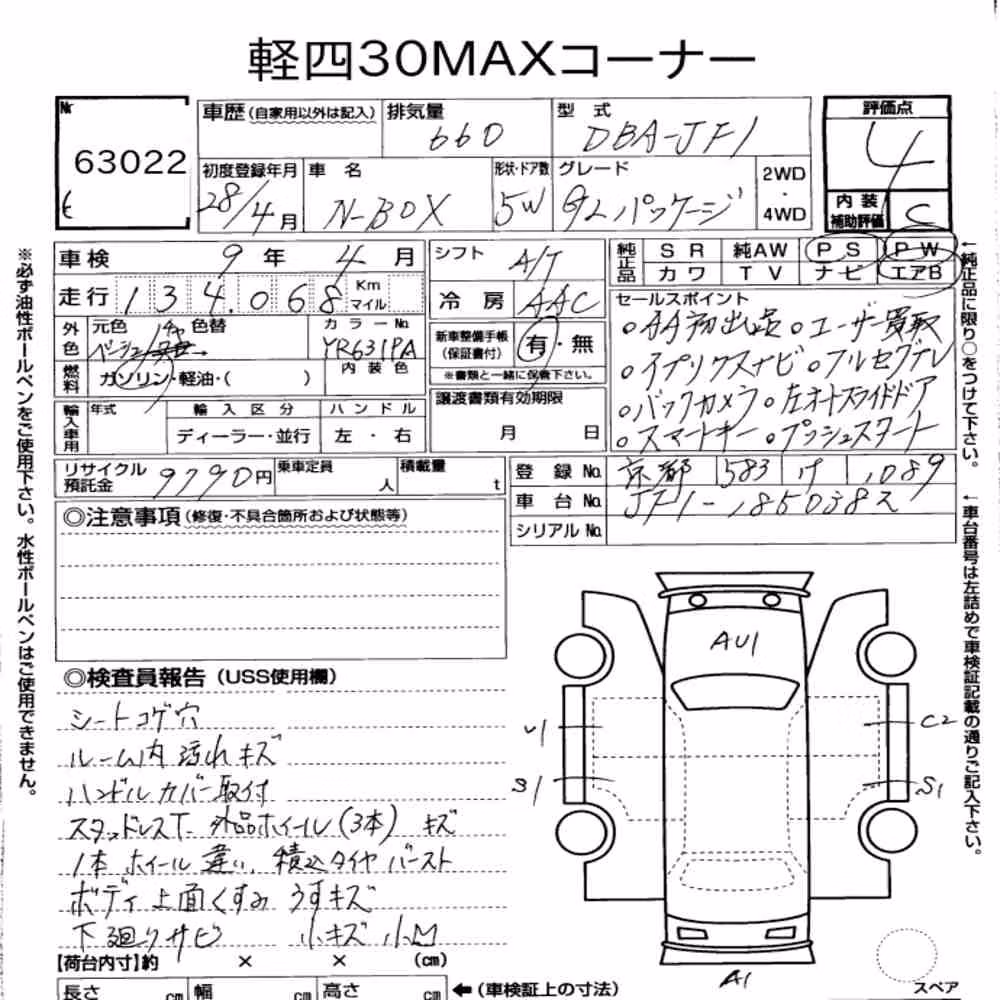 軽四30MAXコーナー
№ 63022
車歴（自家用以外は記入） 排気量 660 型式 DBA-JF1
評価点 4
初度登録年月 28/4月 車名 N-BOX 形状・ドア数 5W グレード G Lパッケージ 2WD・4WD
内装補助評価 C
車検 9年 4月 シフト A/T
純正品 SR 純AW PS PW
カワ TV ナビ エアB
走行 134,068 Km マイル
冷房 AAC
セールスポイント
○AA初出品○ユーザー買取
○イプリクスナビ○フルセグテレ
○バックカメラ○左オートスライドドア
○スマートキー○プッシュスタート
外色 元色 ベージュ 色替 カラーNo. YR631PA
内装色
新車整備手帳（保証書付） 有・無
※書類と一緒に保管下さい。
燃料 ガソリン・軽油・（ ）
輸入車用 年式 輸入区分 ハンドル
ディーラー・並行 左・右
譲渡書類有効期限
月 日
リサイクル預託金 9790円 乗車定員 人 積載量 t
登録No. 京都 583 け 1089
車台No. JF1-1850382
シリアルNo.
◎注意事項（修復・不具合箇所および状態等）
◎検査員報告（USS使用欄）
シートコゲ穴
ルーム内汚れキズ
ハンドルカバー取付
スタッドレスT 外品ホイール(3本) キズ
1本ホイール違い、積込タイヤバースト
ボディ上面くすみ うすキズ
下廻りサビ 小キズ 小凹
AU1
U1 C2
S1 S1
A1
スペア
【荷台内寸】約 × × （cm）
長さ cm 幅 cm 高さ cm ←（車検証上の寸法）
※必ず油性ボールペンをご使用下さい。水性ボールペンはご使用できません。
←純正品に限り○をつけて下さい。
←車台番号は左詰めで車検証記載の通りご記入下さい。